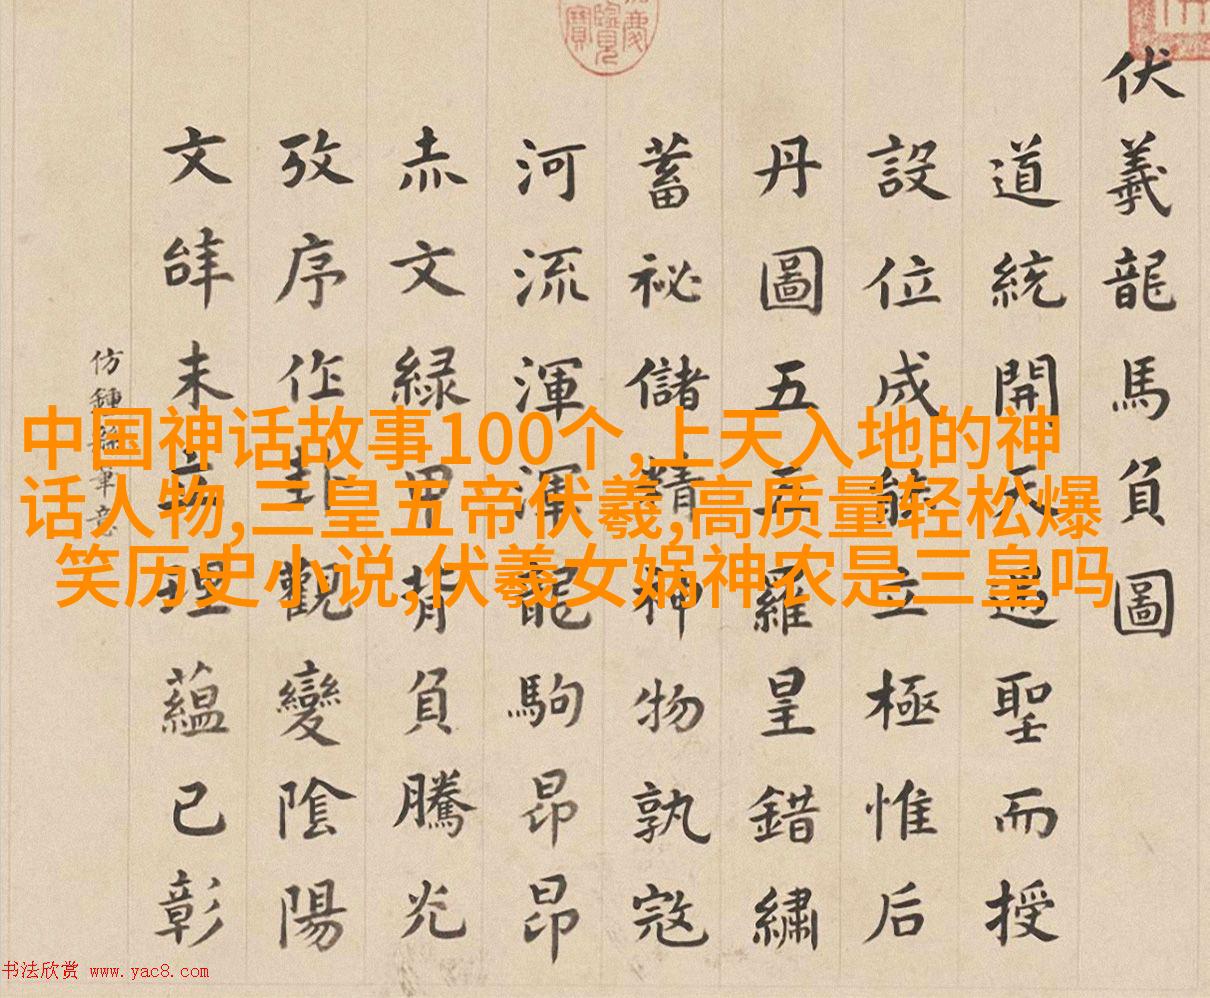 伏羲龍馬負圖
道統開天聖而授
設位成能立極惟后
丹圖五羅皇錯繡
蓄祕儲精神物孰寇
河流渾渾龍駒昂昂
赤文緑甲背負騰光
攷序作卦觀變陰陽
文未立理蘊已彰
仿鍾繇筆意
中国神话故事100个,上天入地的神
话人物,三皇五帝伏羲,高质量轻松爆
笑历史小说,伏羲女娲神农是三皇吗
书法欣赏 www.yac8.com